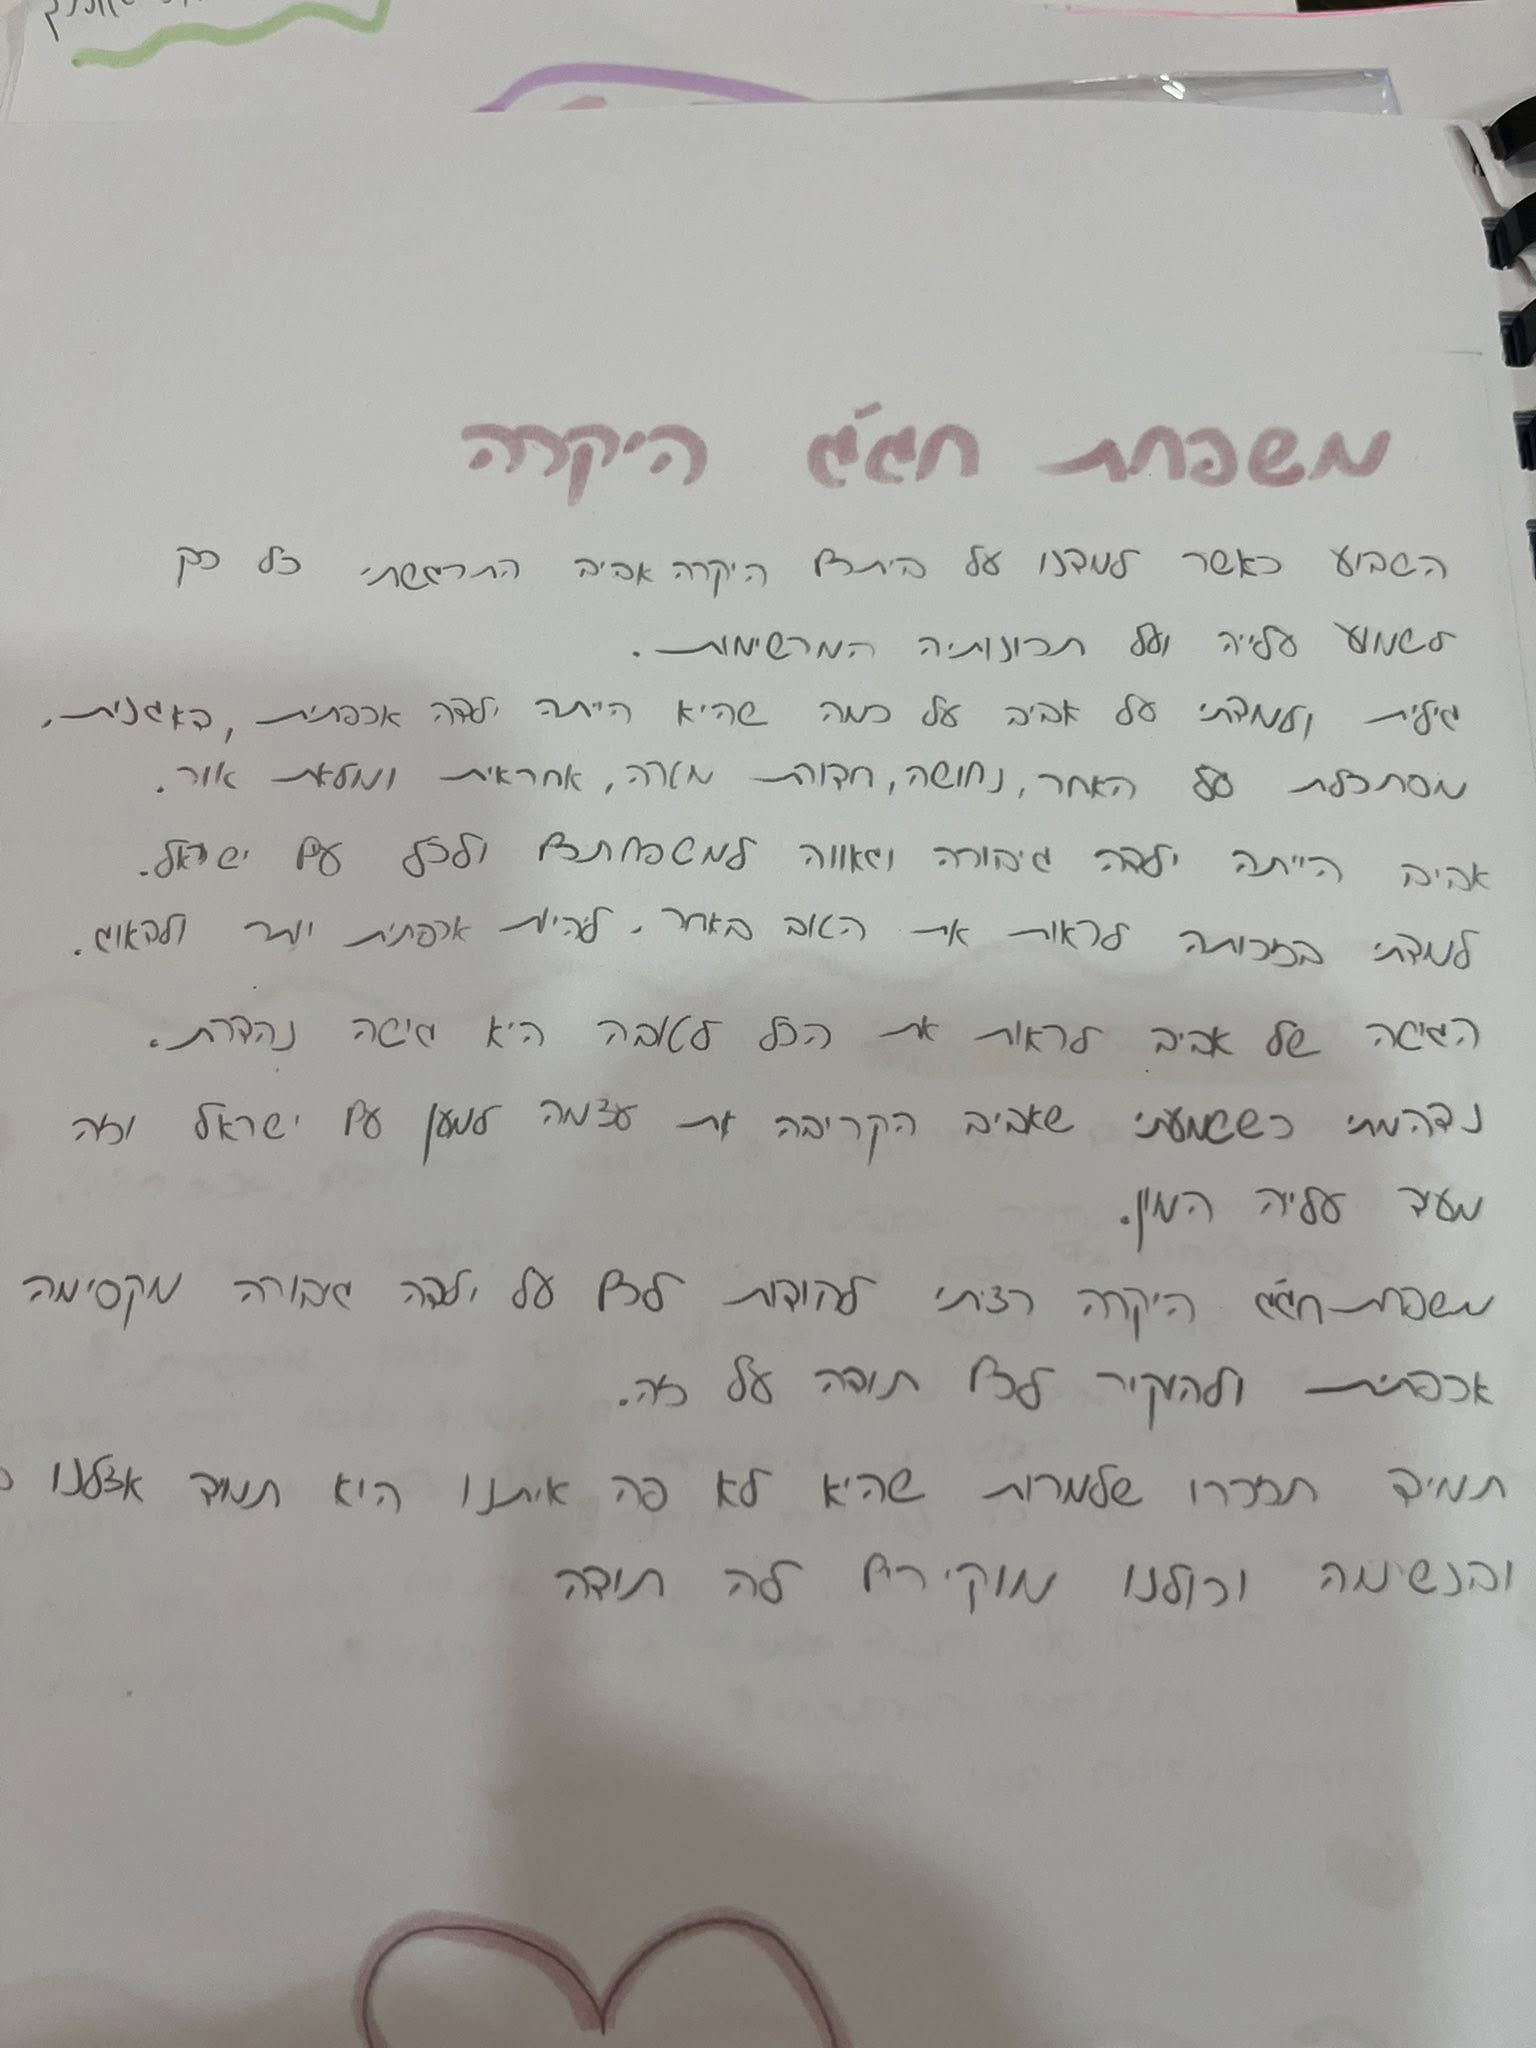 משפחת חג'ג היקרה
השבוע כאשר למדנו על ביתכם היקרה אביב התרגשתי כל כך
לשמוע עלייה ועל תכונותיה המרשימות.
גילית ולמדתי על אביב על כמה שהיא הייתה ילדה אכפתית, דאגנית,
מסתכלת על האחר, נחושה, חדורת מטרה, אחראית ומלאת אור.
אביב הייתה ילדה גיבורה וגאווה למשפחתכם ולכל עם ישראל.
למדתי בזכותה לראות את הטוב באחר. להיות אכפתית יותר ולדאוג.
הגישה של אביב לראות את הכל לטובה היא גישה נהדרת.
נדהמתי כששמעתי שאביב הקריבה את עצמה למען עם ישראל וזה
מעיד עלייה המון.
משפחת חג'ג היקרה רציתי להודות לכם על ילדה גיבורה מקסימה
אכפתית ולהוקיר לכם תודה על זה.
תמיד תזכרו שלמרות שהיא לא פה איתנו היא תמיד אצלנו
ובנשימה וכולנו מוקירים לה תודה